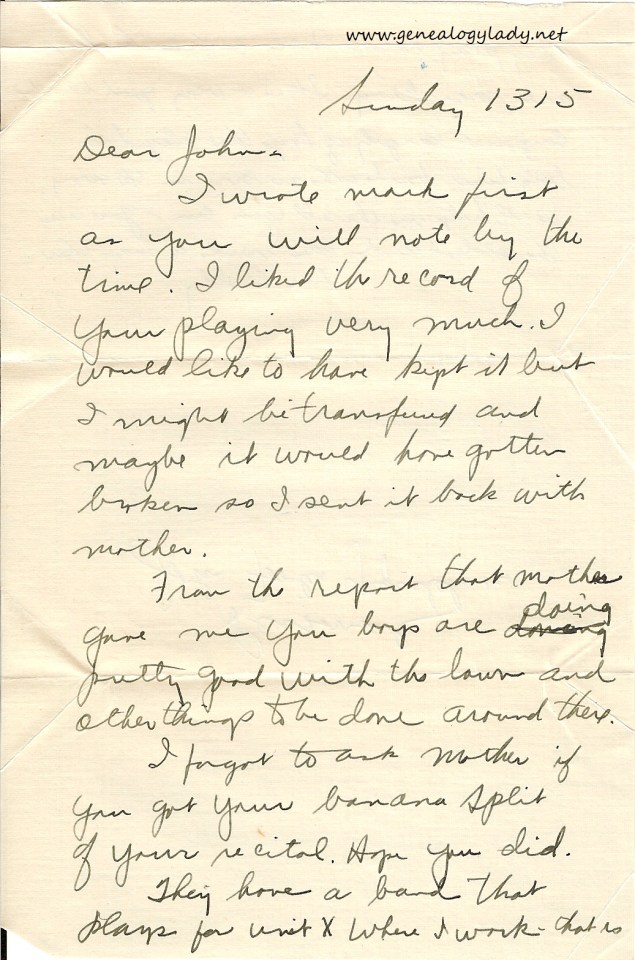 www.genealogylady.net
Sunday 1315
Dear John -
I wrote mark first
as you will note by the
time. I liked the record of
your playing very much. I
would like to have kept it but
I might be transfered and
maybe it would have gotten
broken so I sent it back with
mother.
From the report that mother
gave me you boys are doing
pretty good with the lawn and
other things to be done around there.
I forgot to ask Mother if
you got your banana split
of your recital. Hope you did.
They have a band that
plays for unit X where I work - that is